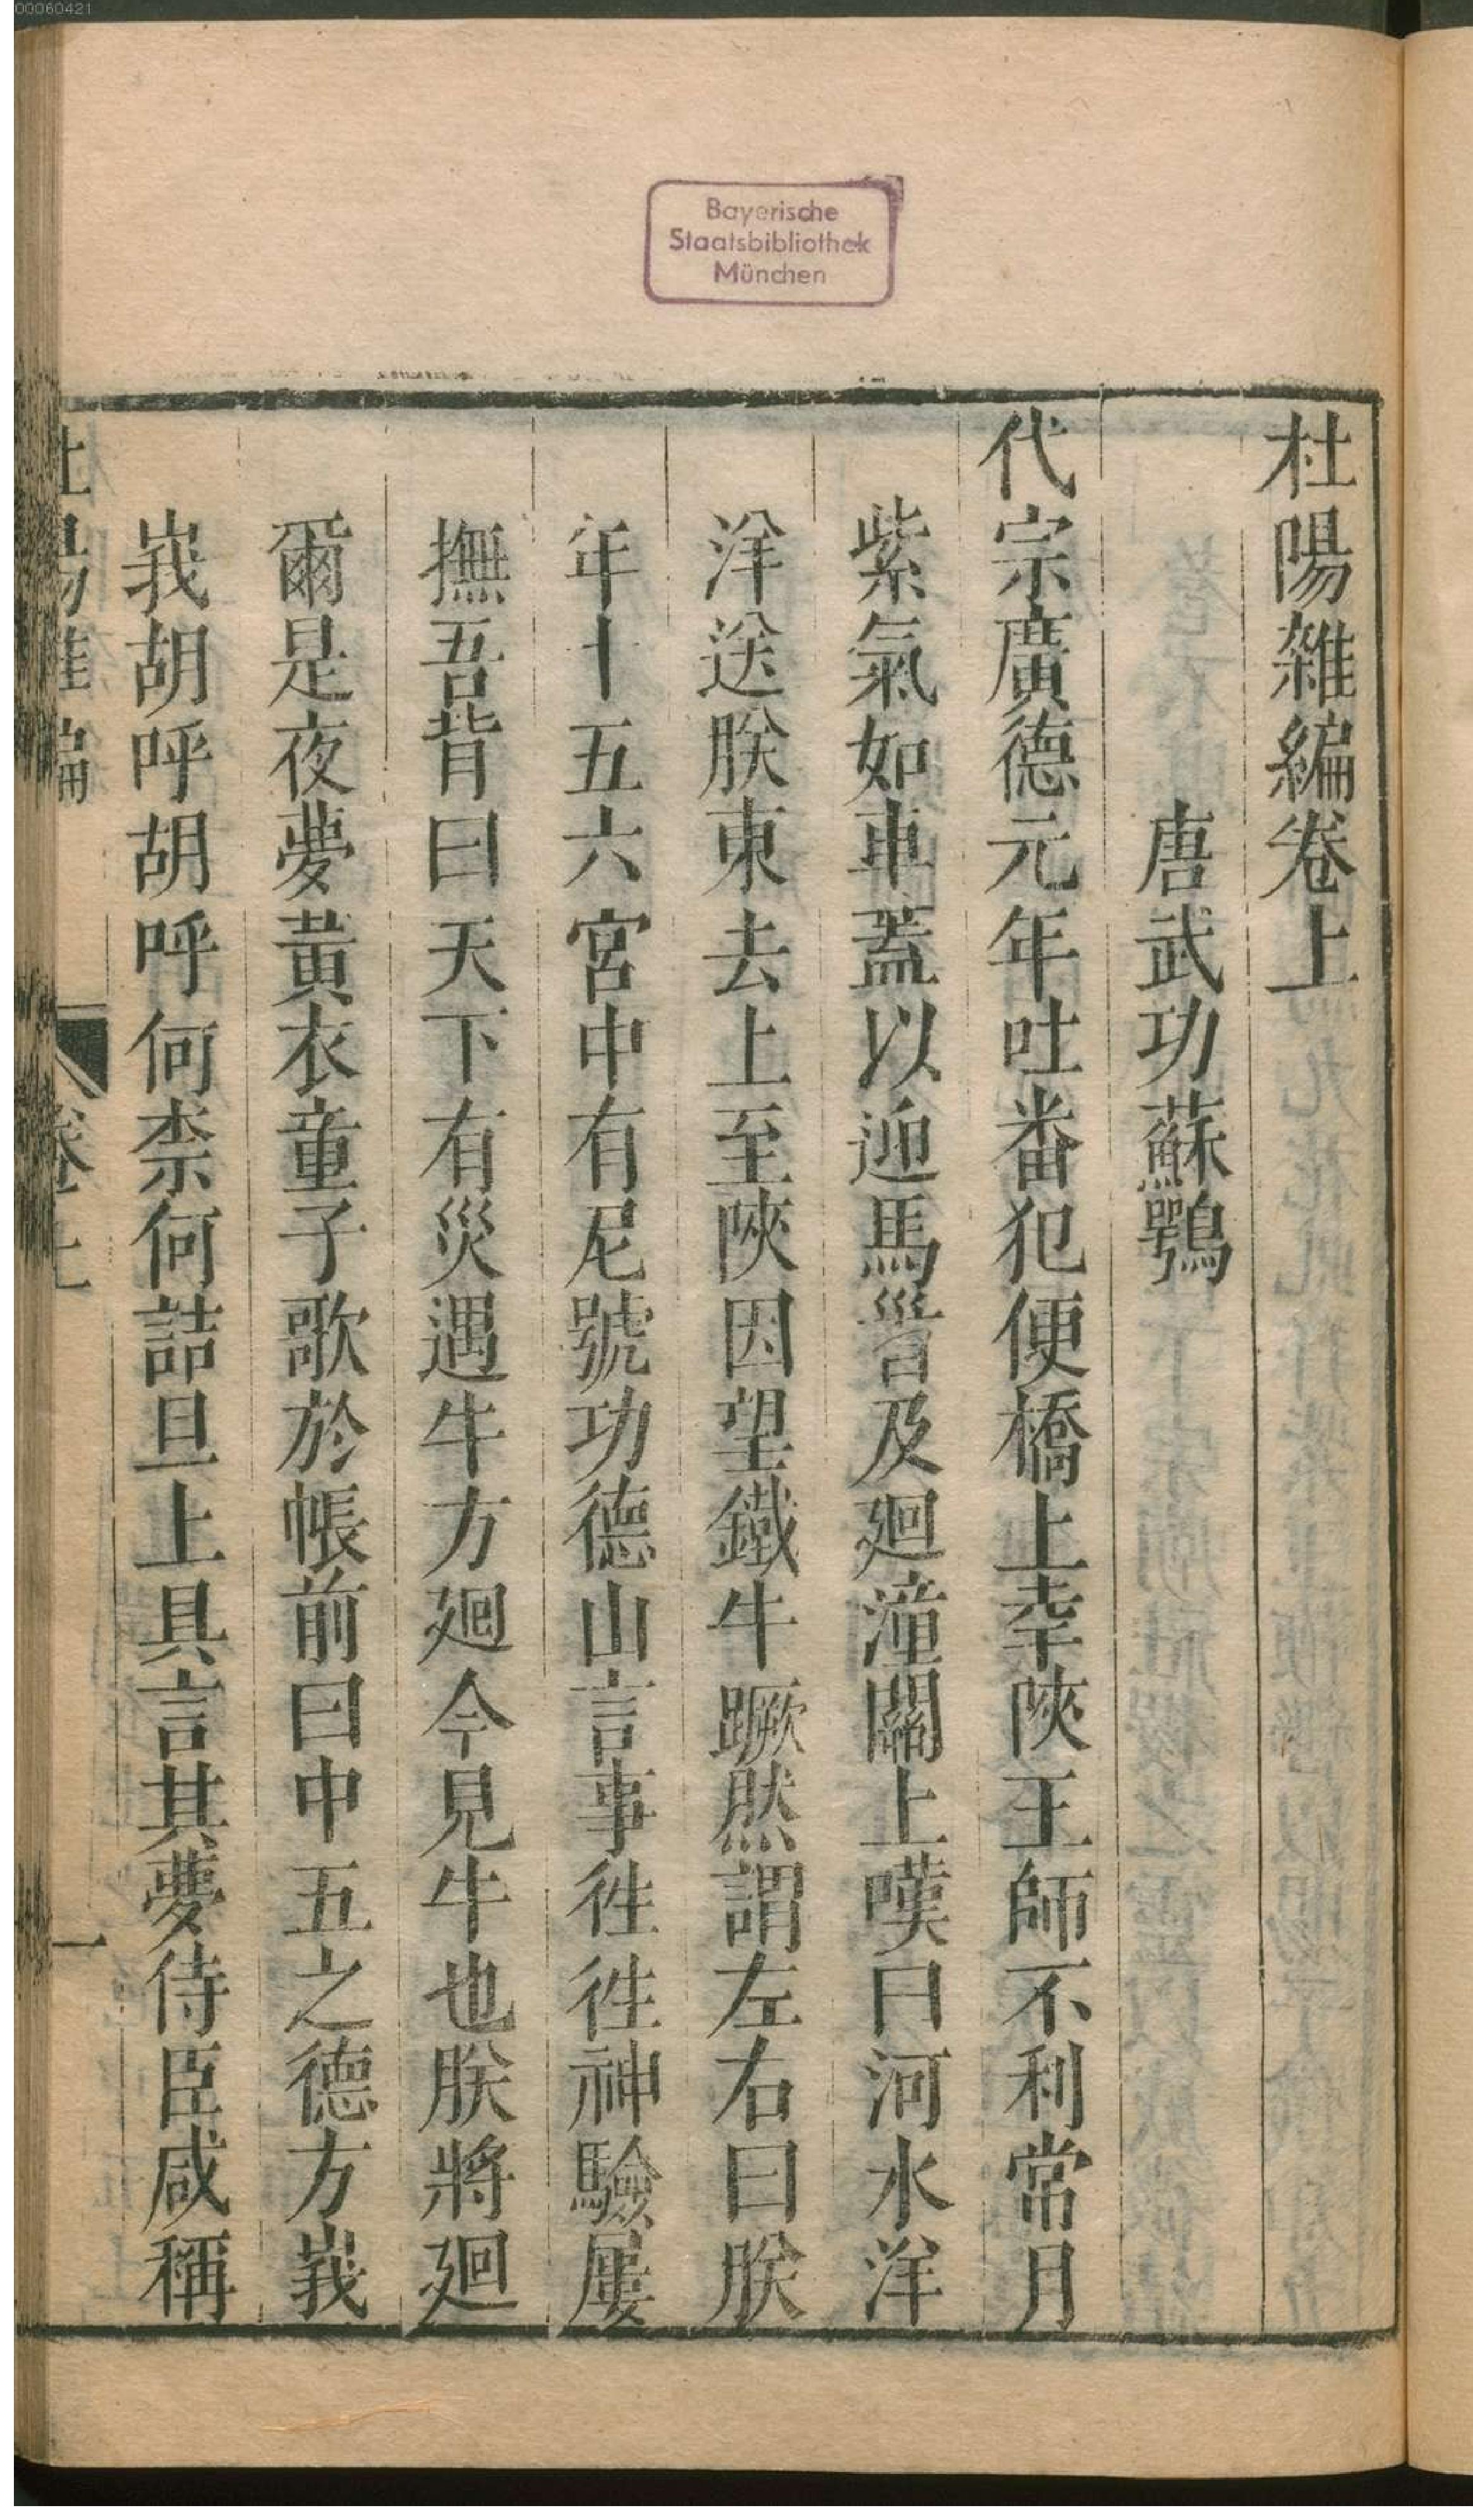 00060421
Bayerische
Staatsbibliothek
München
杜陽雜編卷上
唐武功蘇鶚
代宗廣德元年吐番犯便橋上幸陜王師不利常月
紫氣如車蓋以迎馬首及廻潼關上嘆曰河水洋
洋送朕東去上至陜因望鐵牛蹶然謂左右曰朕
年十五六宮中有尼號功德山言事徃徃神驗屢
撫吾背曰天下有災遇牛方廻今見牛也朕將廻
爾是夜夢黃衣童子歌於帳前曰中五之德方峩
峩胡呼胡呼何柰何詰旦上具言其夢侍臣咸稱
杜陽雜編
卷上
一